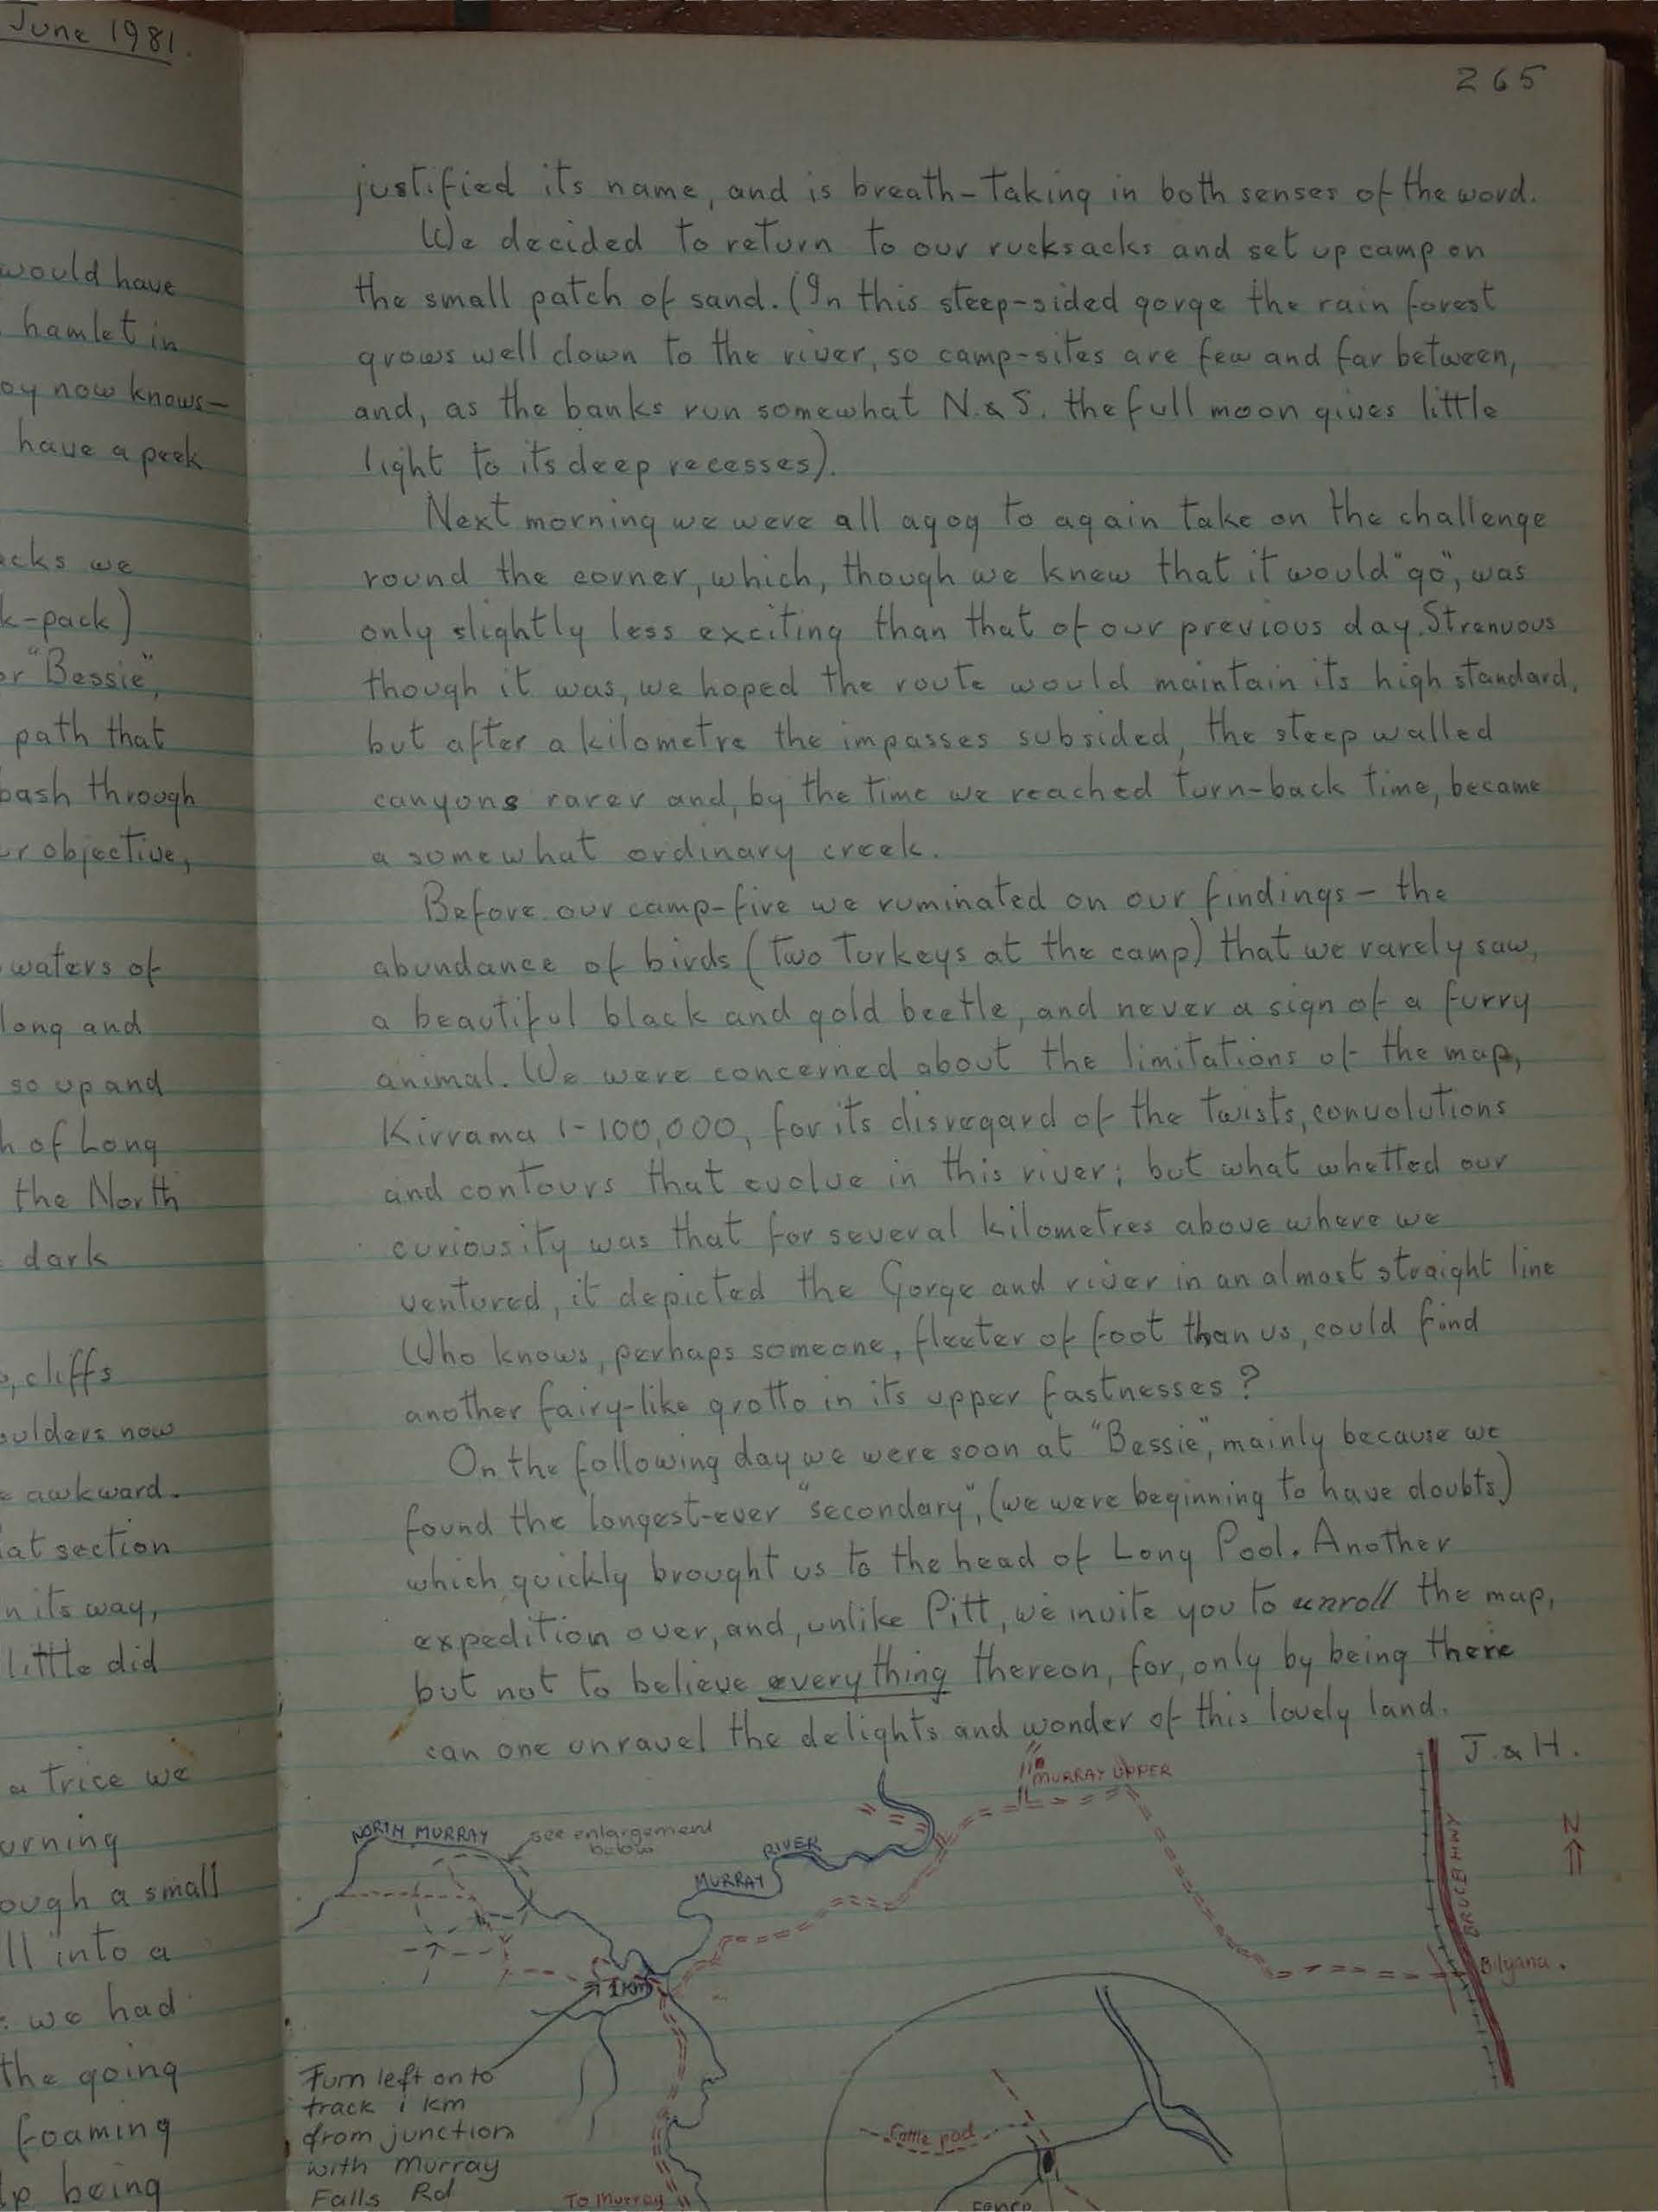 June 1981.
would have
hamlet in
oy now knows—
have a peek
acks we
k-pack)
or "Bessie",
path that
bash through
ur objective,
waters of
long and
so up and
h of Long
the North
dark
cliffs
oulders now
awkward.
at section
n its way,
little did
a trice we
urning
ough a small
ll into a
we had
the going
foaming
lp being
265
justified its name, and is breath-taking in both senses of the word.
We decided to return to our rucksacks and set up camp on
the small patch of sand. (In this steep-sided gorge the rain forest
grows well down to the river, so camp-sites are few and far between,
and, as the banks run somewhat N. & S. the full moon gives little
light to its deep recesses).
Next morning we were all agog to again take on the challenge
round the corner, which, though we knew that it would "go", was
only slightly less exciting than that of our previous day. Strenuous
though it was, we hoped the route would maintain its high standard,
but after a kilometre the impasses subsided, the steep walled
canyons rarer and, by the time we reached turn-back time, became
a somewhat ordinary creek.
Before our camp-fire we ruminated on our findings – the
abundance of birds (two turkeys at the camp) that we rarely saw,
a beautiful black and gold beetle, and never a sign of a furry
animal. We were concerned about the limitations of the map,
Kirrama 1-100,000, for its disregard of the twists, convolutions
and contours that evolve in this river; but what whetted our
curiousity was that for several kilometres above where we
ventured, it depicted the Gorge and river in an almost straight line
Who knows, perhaps someone, fleeter of foot than us, could find
another fairy-like grotto in its upper fastnesses?
On the following day we were soon at "Bessie", mainly because we
found the longest-ever "secondary", (we were beginning to have doubts)
which quickly brought us to the head of Long Pool. Another
expedition over, and, unlike Pitt, we invite you to unroll the map,
but not to believe everything thereon, for, only by being there
can one unravel the delights and wonder of this lovely land.
J. & H.
MURRAY UPPER
NORTH MURRAY
see enlargement
below
RIVER
MURRAY
BRUCE HWY
N
Bilyana.
1km
Turn left on to
track 1 km
from junction
with Murray
Falls Rd
To Murray
Cattle pad
Fence